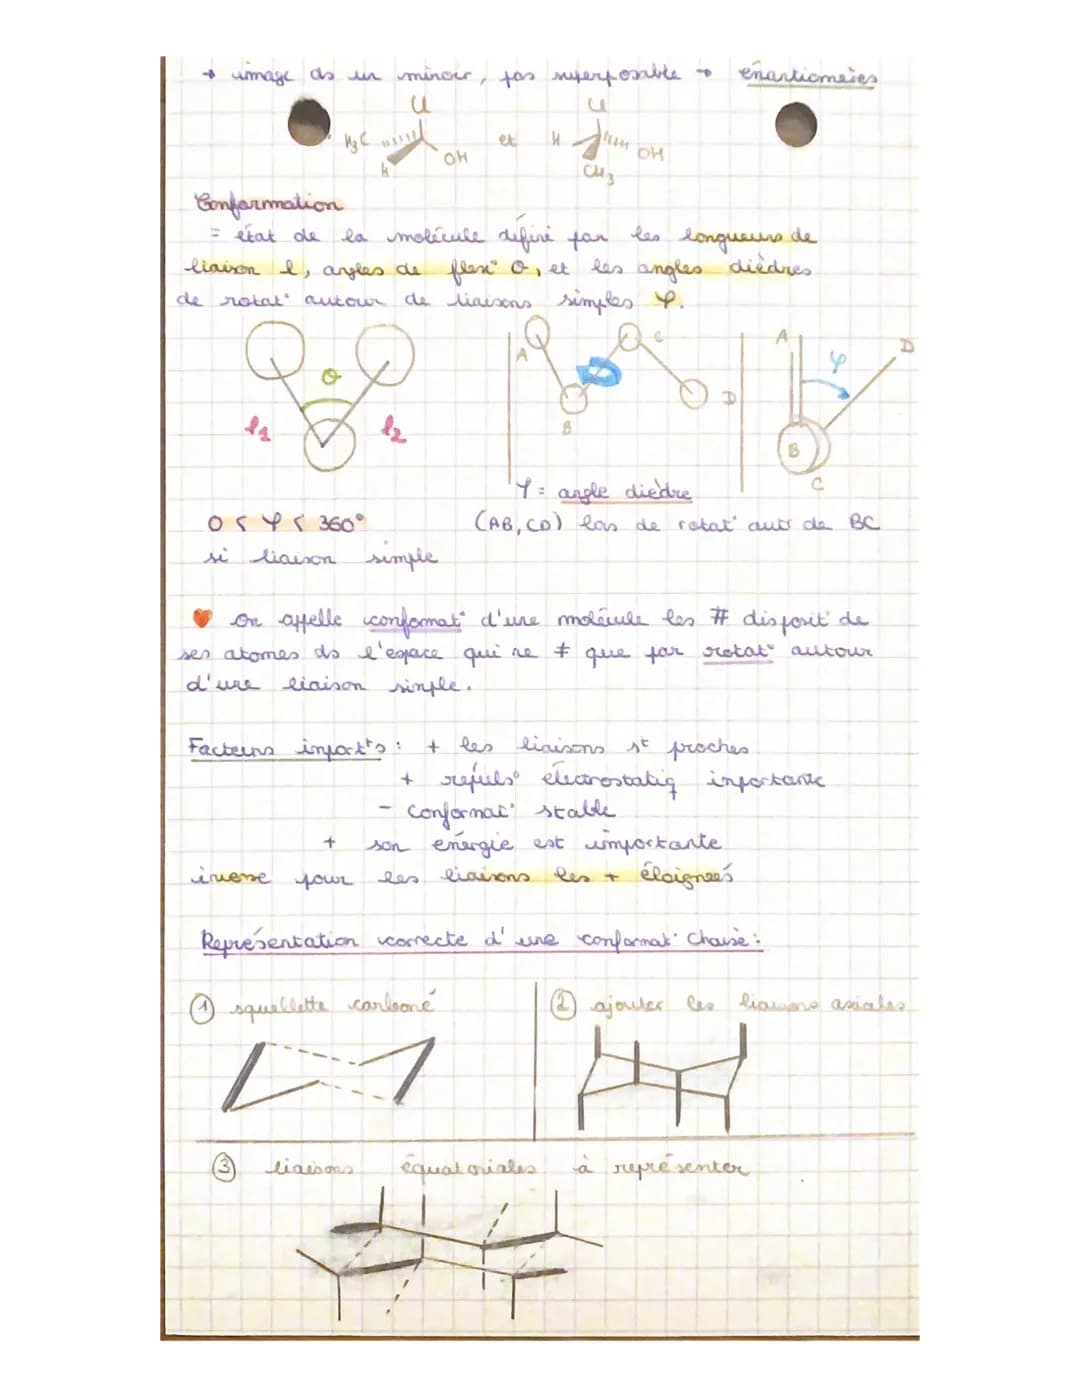 → image ds un miroir, pas superposable → énantiomères
Cl Cl
H₃C et H
OH OH
H CH₃
Conformation
= état de la molécule défini par les longueurs de
liaison l, angles de flex° θ, et les angles dièdres
de rotat° autour de liaisons simples φ.
A C A φ D
θ
l₁ l₂ B D B
C
φ = angle dièdre
0 ≤ φ ≤ 360° (AB, CD) lors de rotat° autr de BC
si liaison simple
❤ On appelle conformat° d'une molécule les ≠ disposit° de
ses atomes ds l'espace qui ne ≠ que par rotat° autour
d'une liaison simple.
Facteurs import^ts : + les liaisons st proches
+ repuls° électrostatiq importante
- conformat° stable
+ son énergie est importante
inverse pour les liaisons les + éloignées
Représentation correcte d'une conformat° Chaise :
① squellette carboné ② ajouter les liaisons axiales
③ liaisons équatoriales à représenter